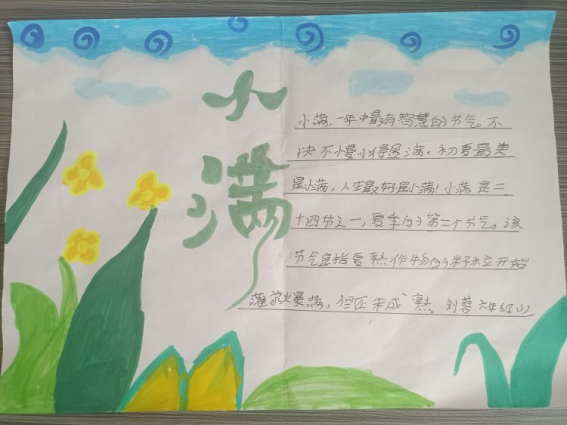 小满
小满,一年中最有智慧的节气。不
决不慢小得盈满。初夏最美
是小满,人生最好是小满!小满是二
十四节之一,夏季的第二个节气。该
节气是指夏熟作物的籽粒开始
灌浆 满,但还未成“熟。刘蓉 六年级(1)